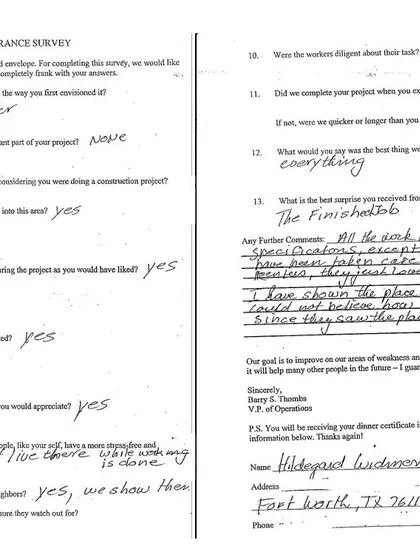 RANCE SURVEY
d envelope. For completing this survey, we would like
ompletely frank with your answers.
the way you first envisioned it?
er
ant part of your project? NONE
considering you were doing a construction project?
into this area? yes
uring the project as you would have liked? yes
ed? yes
you would appreciate? yes
ople, like your self, have a more stress free and
live there while working
is done
ighbors? yes, we show them
sure they watch out for?
10. Were the workers diligent about their task?
11. Did we complete your project when you ex
If not, were we quicker or longer than you
12. What would you say was the best thing wo
everything
13. What is the best surprise you received from
The Finished Job
Any Further Comments: All the work
specifications, except
have been taken care
they just love
I have shown the place
could not believe how
since they saw the pla
Our goal is to improve on our areas of weakness an
it will help many other people in the future – I guar
Sincerely,
Barry S. Thombs
V.P. of Operations
P.S. You will be receiving your dinner certificate i
information below. Thanks again!
Name Hildegard
Address
Fort Worth, TX 7611
Phone